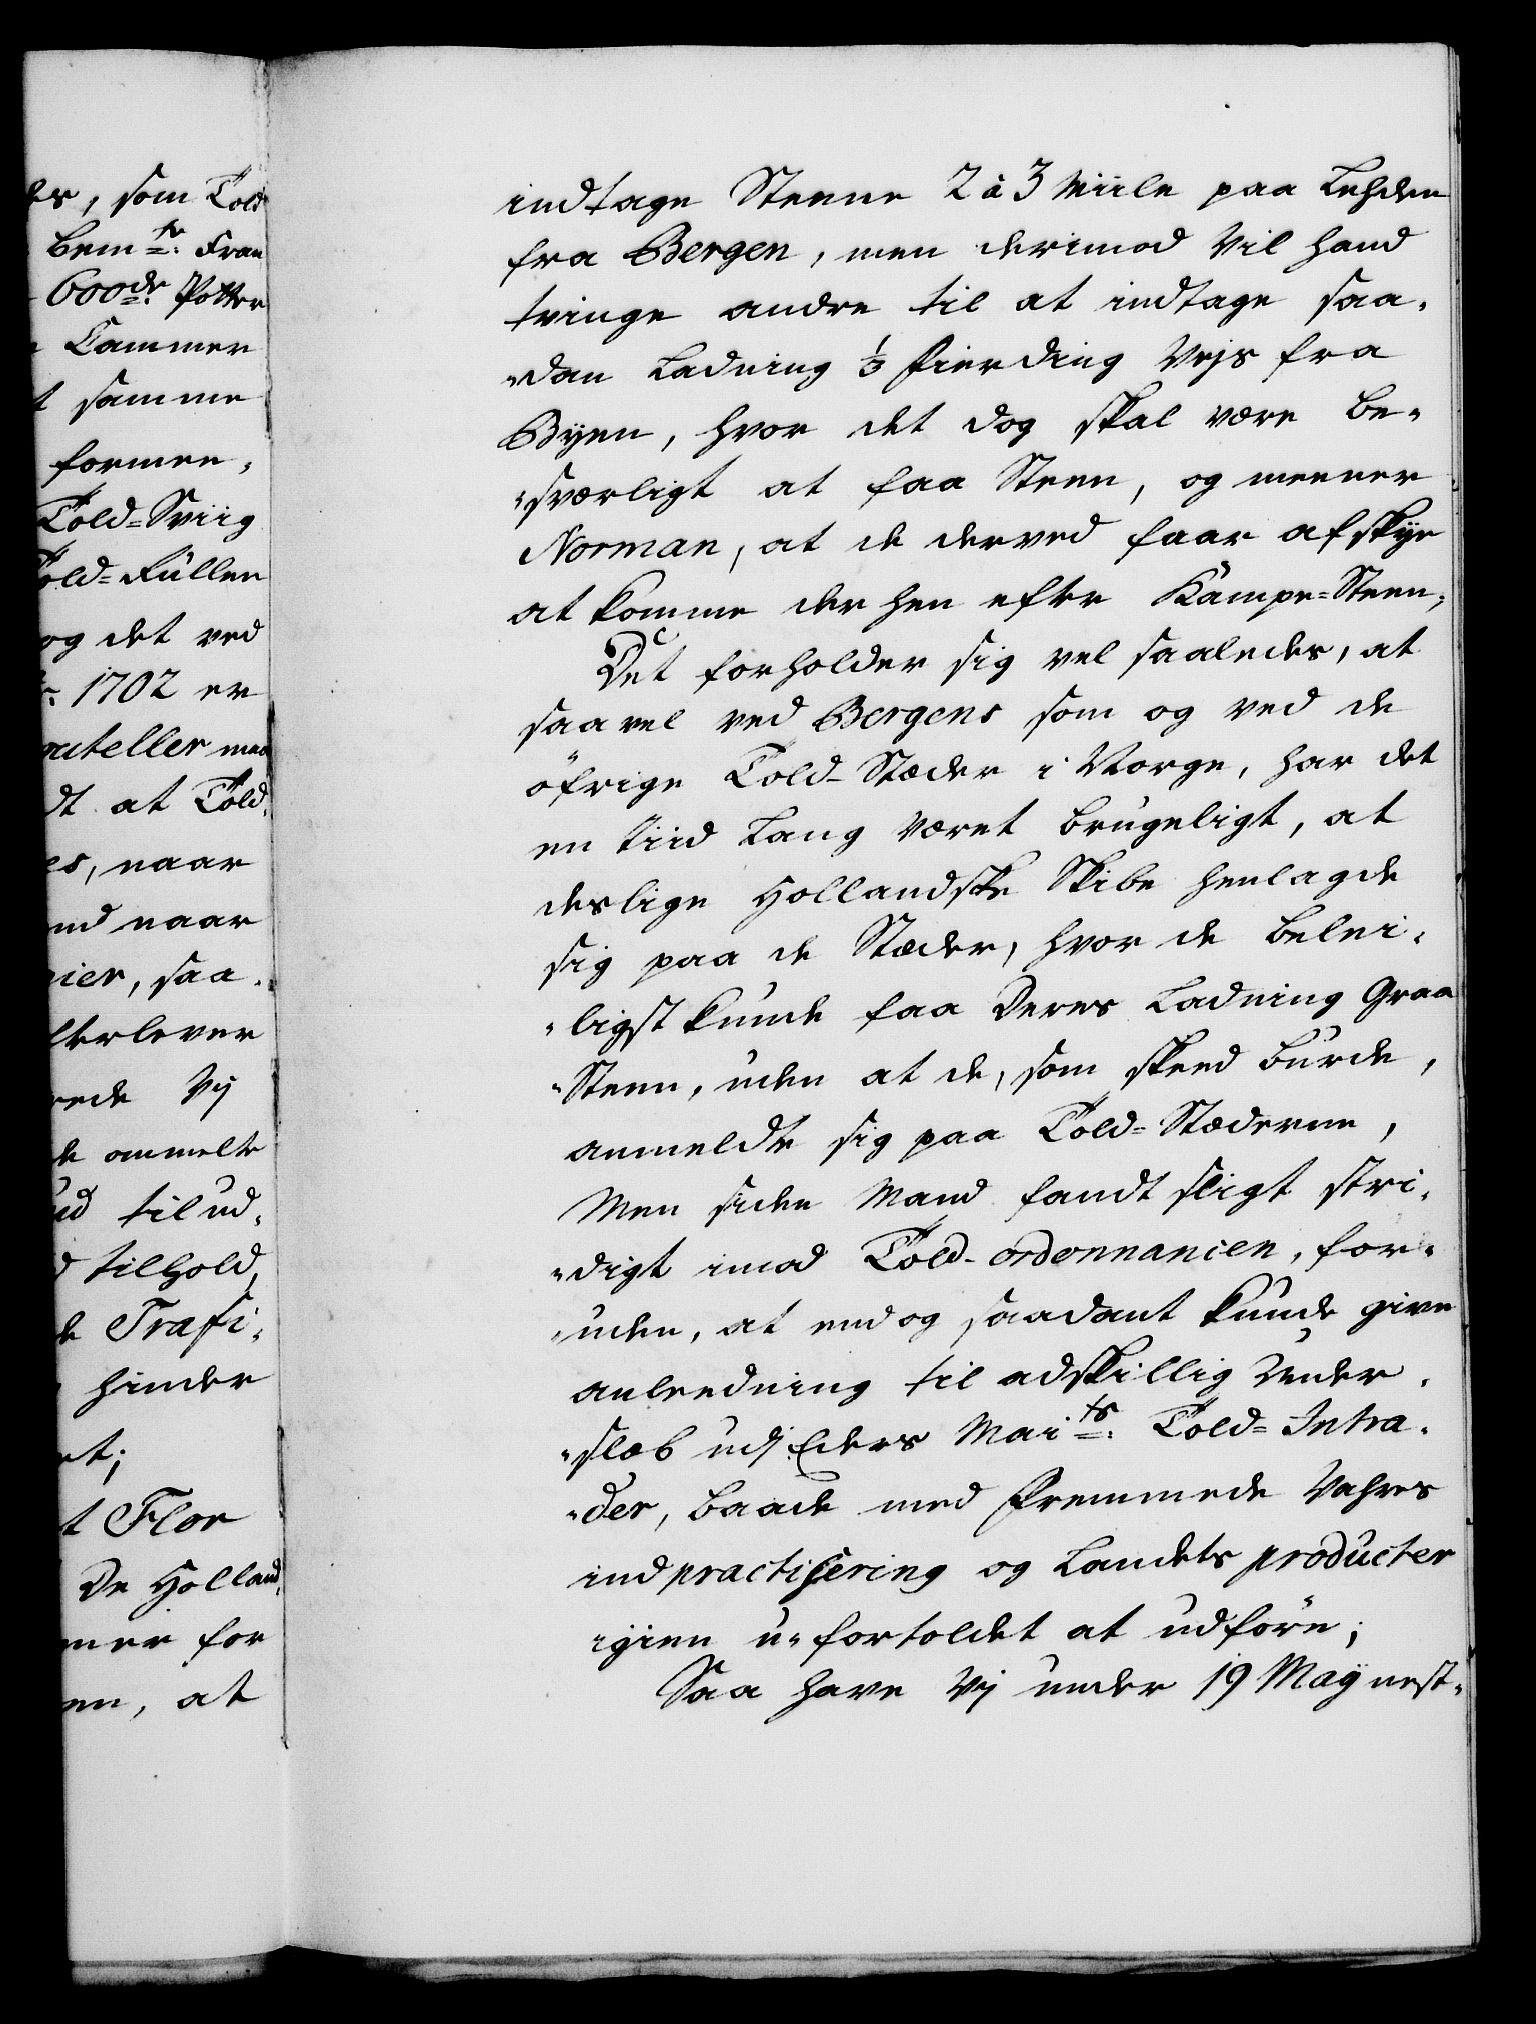 es, som Told
Bemte: Fran
600de: Potter
Cammer
t samme
formen,
Told=Sviig
Told=Rullen
og det ved
1702 er
outeller maa
dt at Told,
es, naar
end naar
nier, saa,
lterlever
rede Vij
de anmelte
ud til ud,
d tilhold,
de Trafi,
hinder
et;
t Flor
De Holland,
mer for
en, at
indtage Steene 2 à 3 Miile paa Lehden
fra Bergen, men derimod Vil hand
tvinge andre til at indtage saa,
"dan Ladning ⅓ Fierding Vejs fra
Byen, hvor det dog skal være be,
"sværligt at faa Steen, og meener
Norman, at de derved faar afskye
at komme derhen efter Kämpe=Steen;
Det forholder sig vel saaledes, at
saavel ved Bergens som og ved de
öfrige Told-Stæder i Norge, har det
en tiid Lang Været brugeligt, at
deslige Hollandske Skibe henlagde
sig paa de Stæder, hvor de belei,
"ligst kunde faa Deres Ladning Graa
"Steen, uden at de, som skeed burde,
anmeldte sig paa Told=Stæderne,
Men siden Mand fandt sligt stri,
"digt imod Told-ordonnancen, for,
"uden, at endog saadant kunde give
anleedning til adskillig Under,
"slæb udj Eders Maits: Told=Intra,
"der, baade med Fremmede Vahres
indpractisering og Landets producter
igien u-fortoldet at udföre;
Saa have Vij under 19 Maij nest,